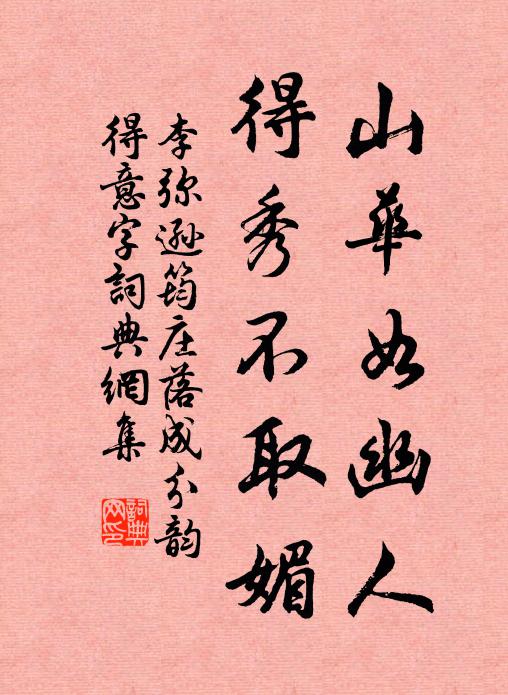 山華如幽人
得秀不取媚
李弥遜筠庄落成分韵
得意字詞典網集
詞典
网印